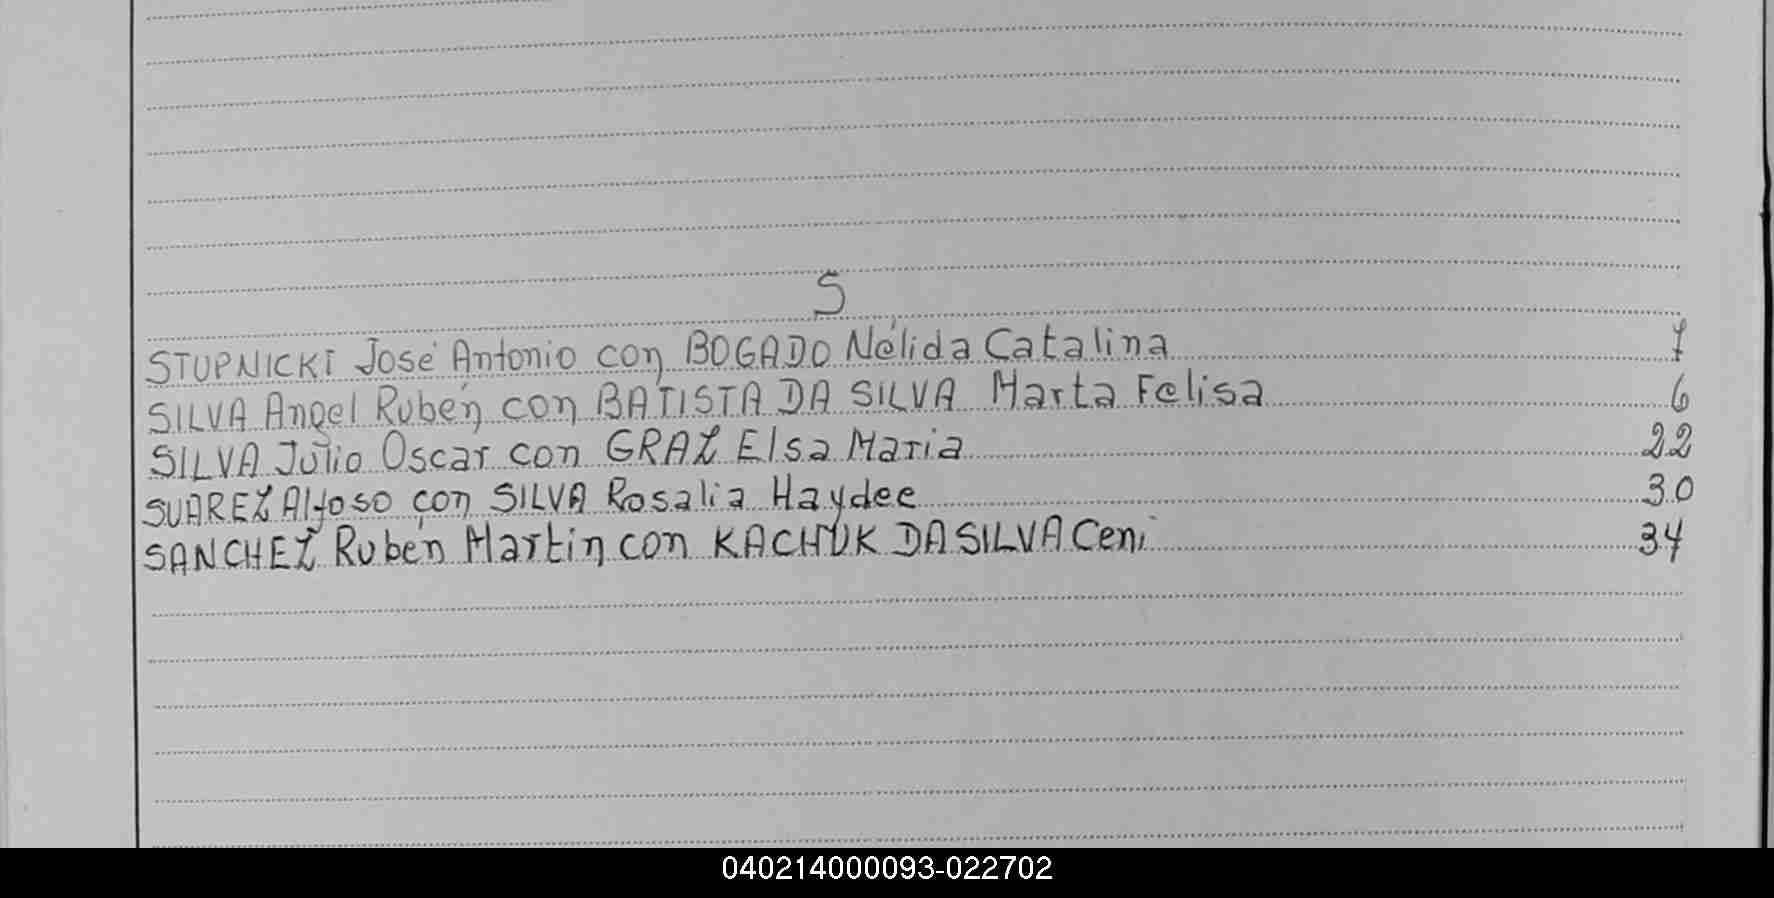 S
STUPNICKI José Antonio con BOGADO Nélida Catalina 1
SILVA Angel Rubén con BATISTA DA SILVA Marta Felisa 6
SILVA Julio Oscar con GRAZ Elsa Maria 22
SUAREZ Alfoso con SILVA Rosalia Haydee 30
SANCHEZ Rubén Martin con KACHUK DA SILVA Ceni 34
040214000093-022702